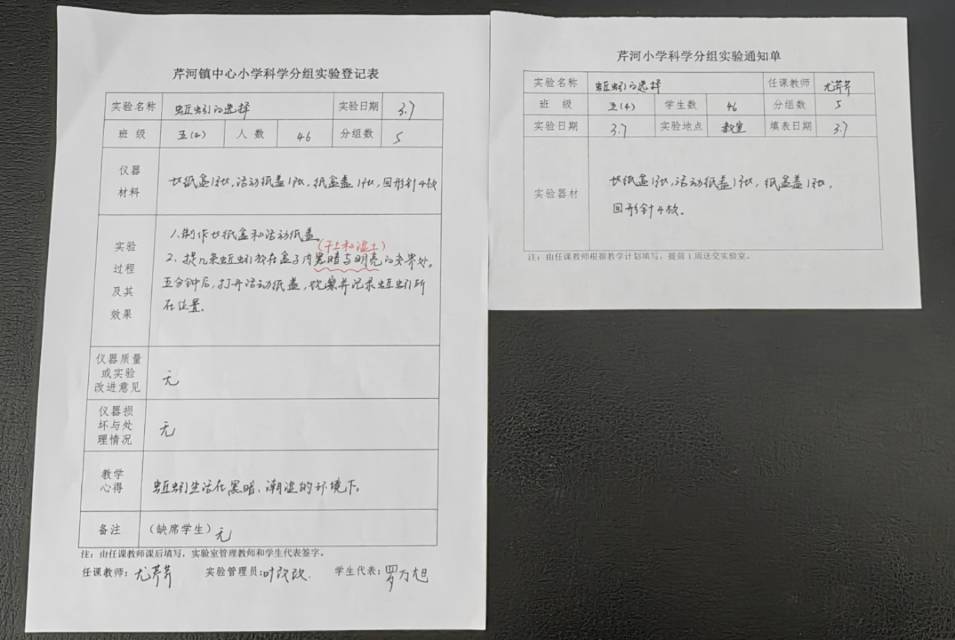 芹河镇中心小学科学分组实验登记表
实验名称 蚯蚓的选择 实验日期 3.7
班 级 五(4) 人 数 46 分组数 5
仪器
材料
长纸盒1张,活动纸盖1张,纸盒盖1张,回形针4枚
实验
过程
及其
效果
1.制作长纸盒和活动纸盖
(干土和湿土)
2.捉几条蚯蚓放在盒子内黑暗与明亮的交界处。
五分钟后,打开活动纸盖,观察并记录蚯蚓所
在位置。
仪器质量
或实验
改进意见
无
仪器损
坏与处
理情况
无
教学
心得
蚯蚓生活在黑暗、潮湿的环境下。
备注 (缺席学生) 无
注:由任课教师课后填写,实验室管理教师和学生代表签字。
任课教师: 尤芹芹 实验管理员: 叶改改. 学生代表: 罗万旭
芹河小学科学分组实验通知单
实验名称 蚯蚓的选择 任课教师 尤芹芹
班 级 五(4) 学生数 46 分组数 5
实验日期 3.7 实验地点 教室 填表日期 3.7
实验器材
长纸盒1张,活动纸盖1张,纸盒盖1张,
回形针4枚。
注:由任课教师根据教学计划填写,提前1周送交实验室。